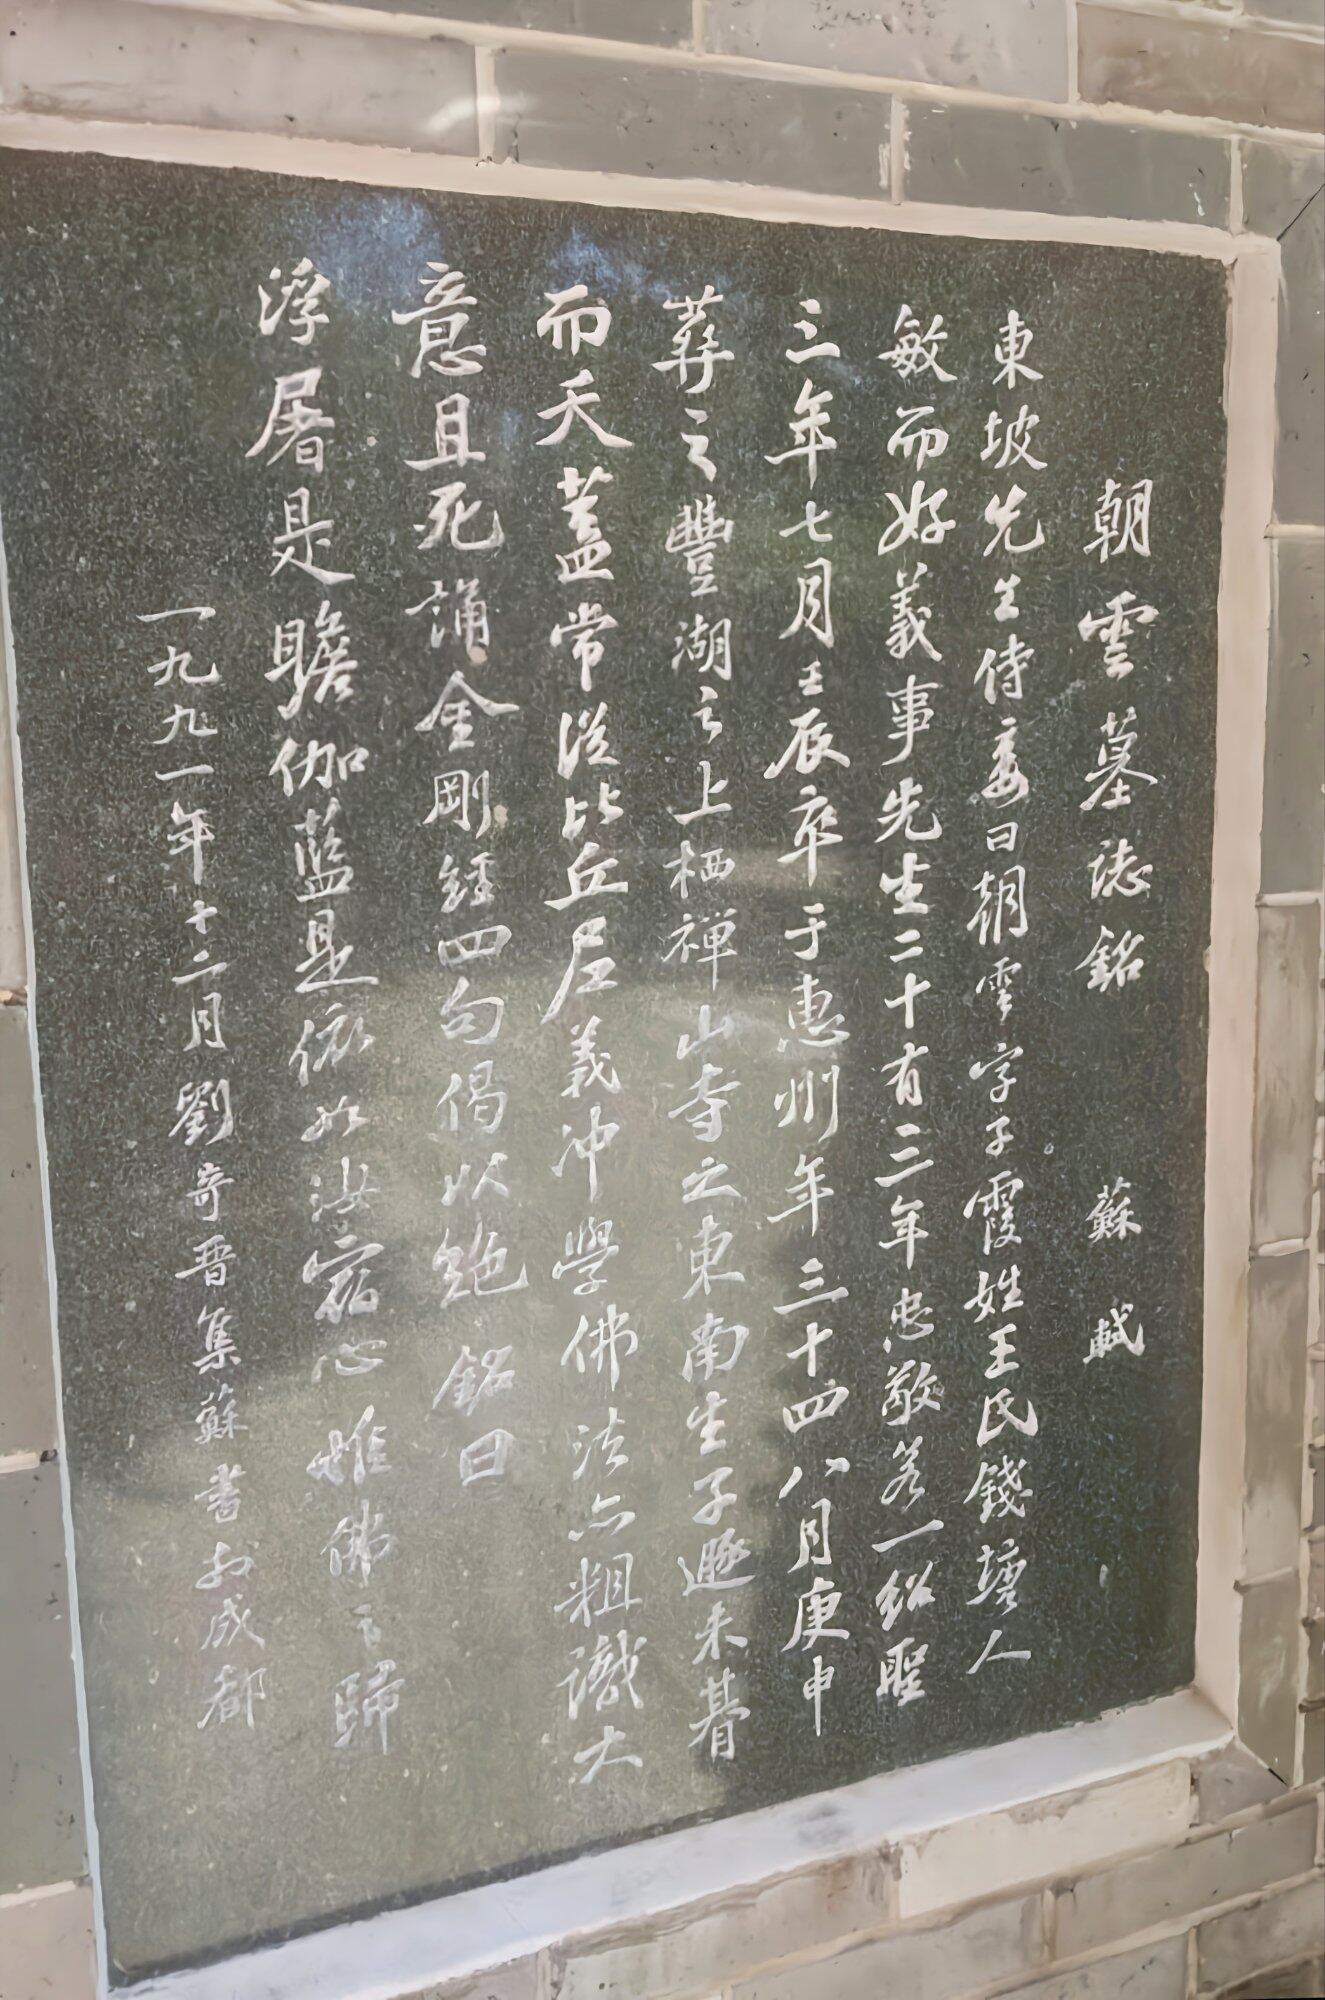 朝雲墓誌銘　蘇軾
東坡先生侍妾曰朝雲字子霞姓王氏錢塘人
敏而好義事先生二十有三年忠敬若一紹聖
三年七月壬辰卒于惠州年三十四八月庚申
葬之豐湖之上栖禅山寺之東南生子遯未朞
而夭蓋常從比丘尼義冲學佛法亦粗識大
意且死誦金剛經四句偈以絶　銘曰
浮屠是瞻伽藍是依如汝宿心惟佛之歸
一九九一年十二月劉奇晋集蘇書於成都